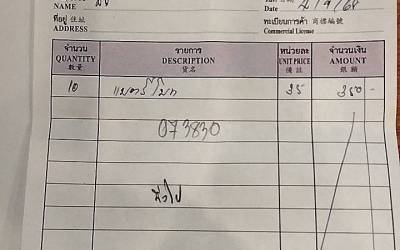 NAME Date 2/9/68
ที่อยู่ 住址 ทะเบียนการค้า 商標編號
ADDRESS Commercial License
จำนวน รายการ หน่วยละ จำนวนเงิน
QUANTITY DESCRIPTION UNIT PRICE AMOUNT
數量 貨名 備註 銀額
10 35 350 -
073830